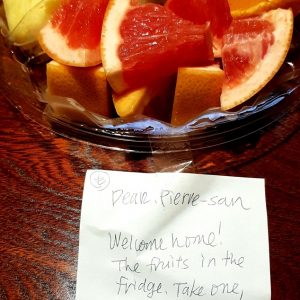 Dear, Pierre-san
Welcome home!
The fruits in the
fridge. Take one,